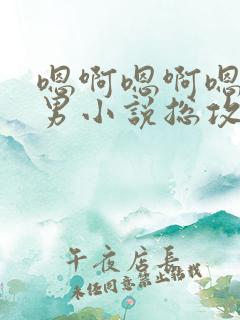 嗯啊嗯啊嗯
男小说总攻
午夜店长
未经同意禁止转载